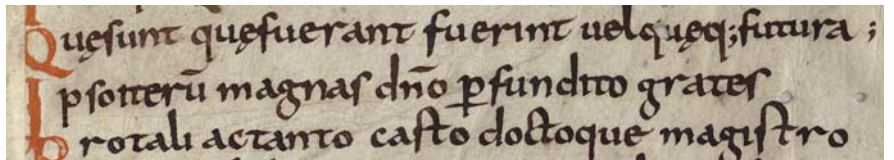 Quęsunt quęfuerant fuerint uelquęq;futura ;
Ipsoiterū magnas dño ꝑfundito grates
Protali actanto casto doctoque magistro